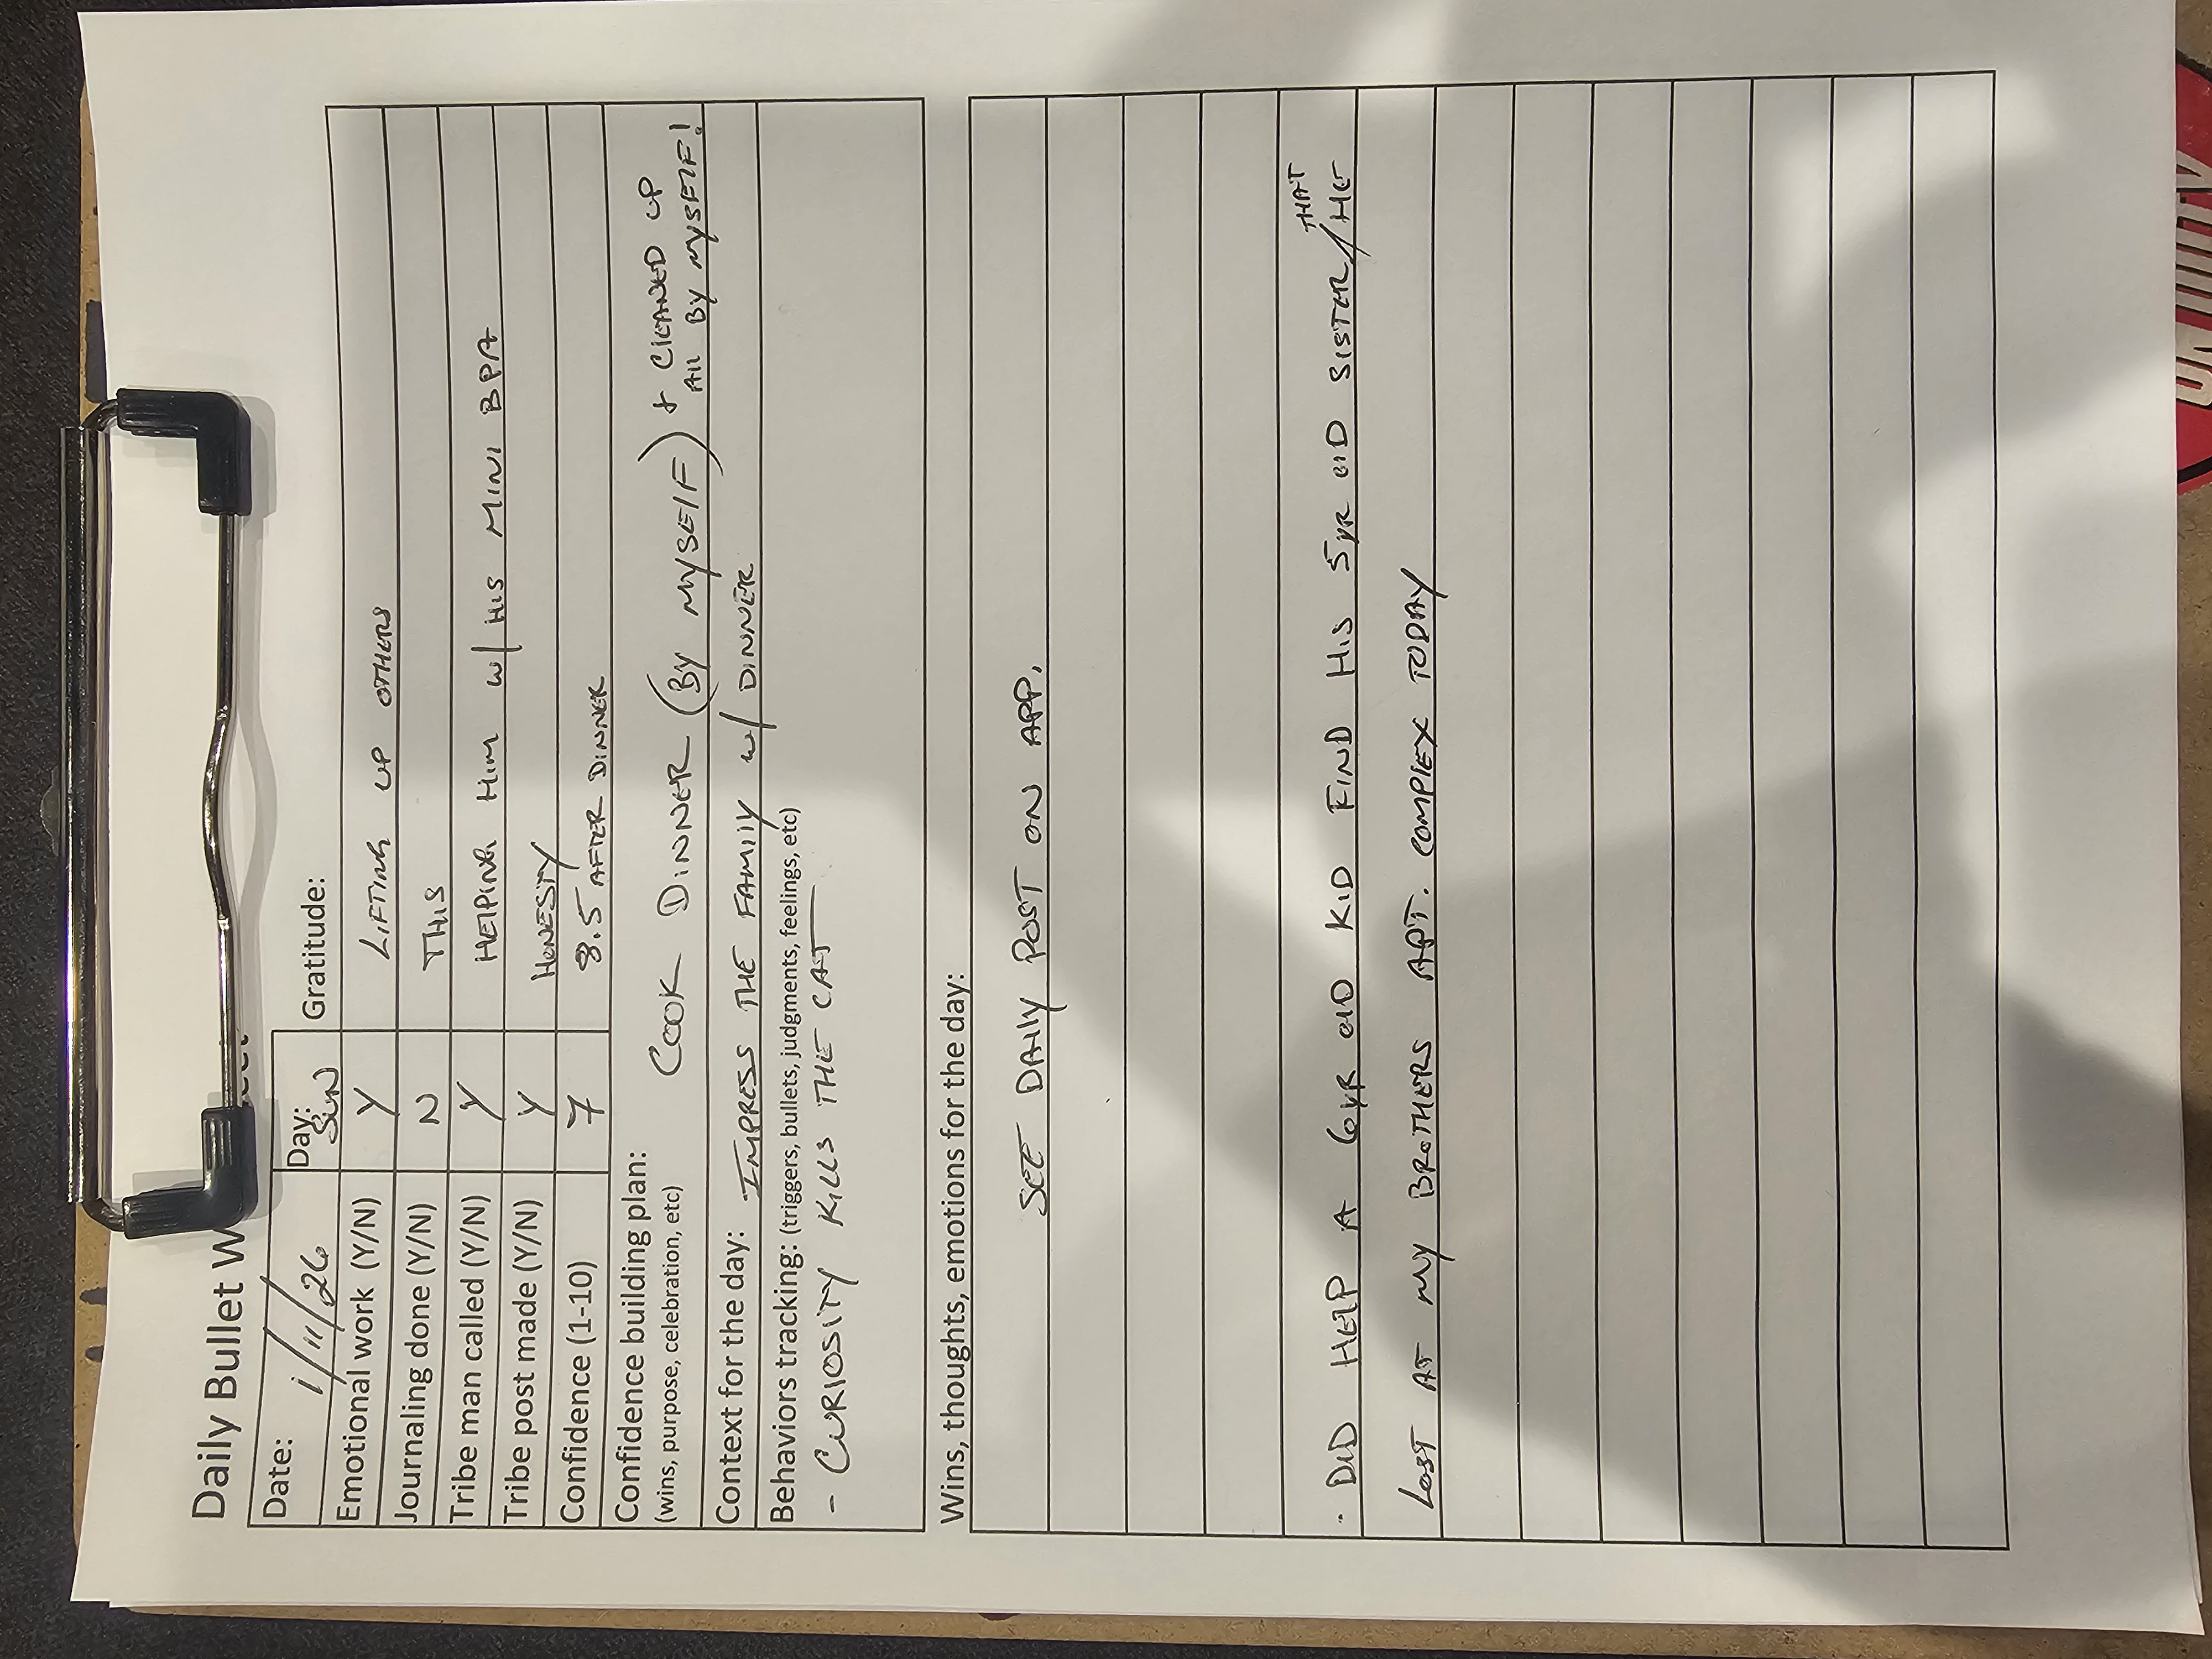 Daily Bullet W
Date: 1/11/26 Day: SUN Gratitude:
Emotional work (Y/N) Y LIFTING UP OTHERS
Journaling done (Y/N) N THIS
Tribe man called (Y/N) Y HELPING HIM W/ HIS MINI BPA
Tribe post made (Y/N) Y HONESTY
Confidence (1-10) 7 8.5 AFTER DINNER
Confidence building plan: COOK DINNER (BY MYSELF) + CLEANED UP
(wins, purpose, celebration, etc) All BY MYSELF!
Context for the day: IMPRESS THE FAMILY W/ DINNER
Behaviors tracking: (triggers, bullets, judgments, feelings, etc)
- CURIOSITY KILLS THE CAT
Wins, thoughts, emotions for the day:
SEE DAILY POST ON APP.
THAT
· DID HELP A 6yR OLD KID FIND HIS 5yR OLD SISTER/HE
LOST AT MY BROTHERS APT. COMPLEX TODAY